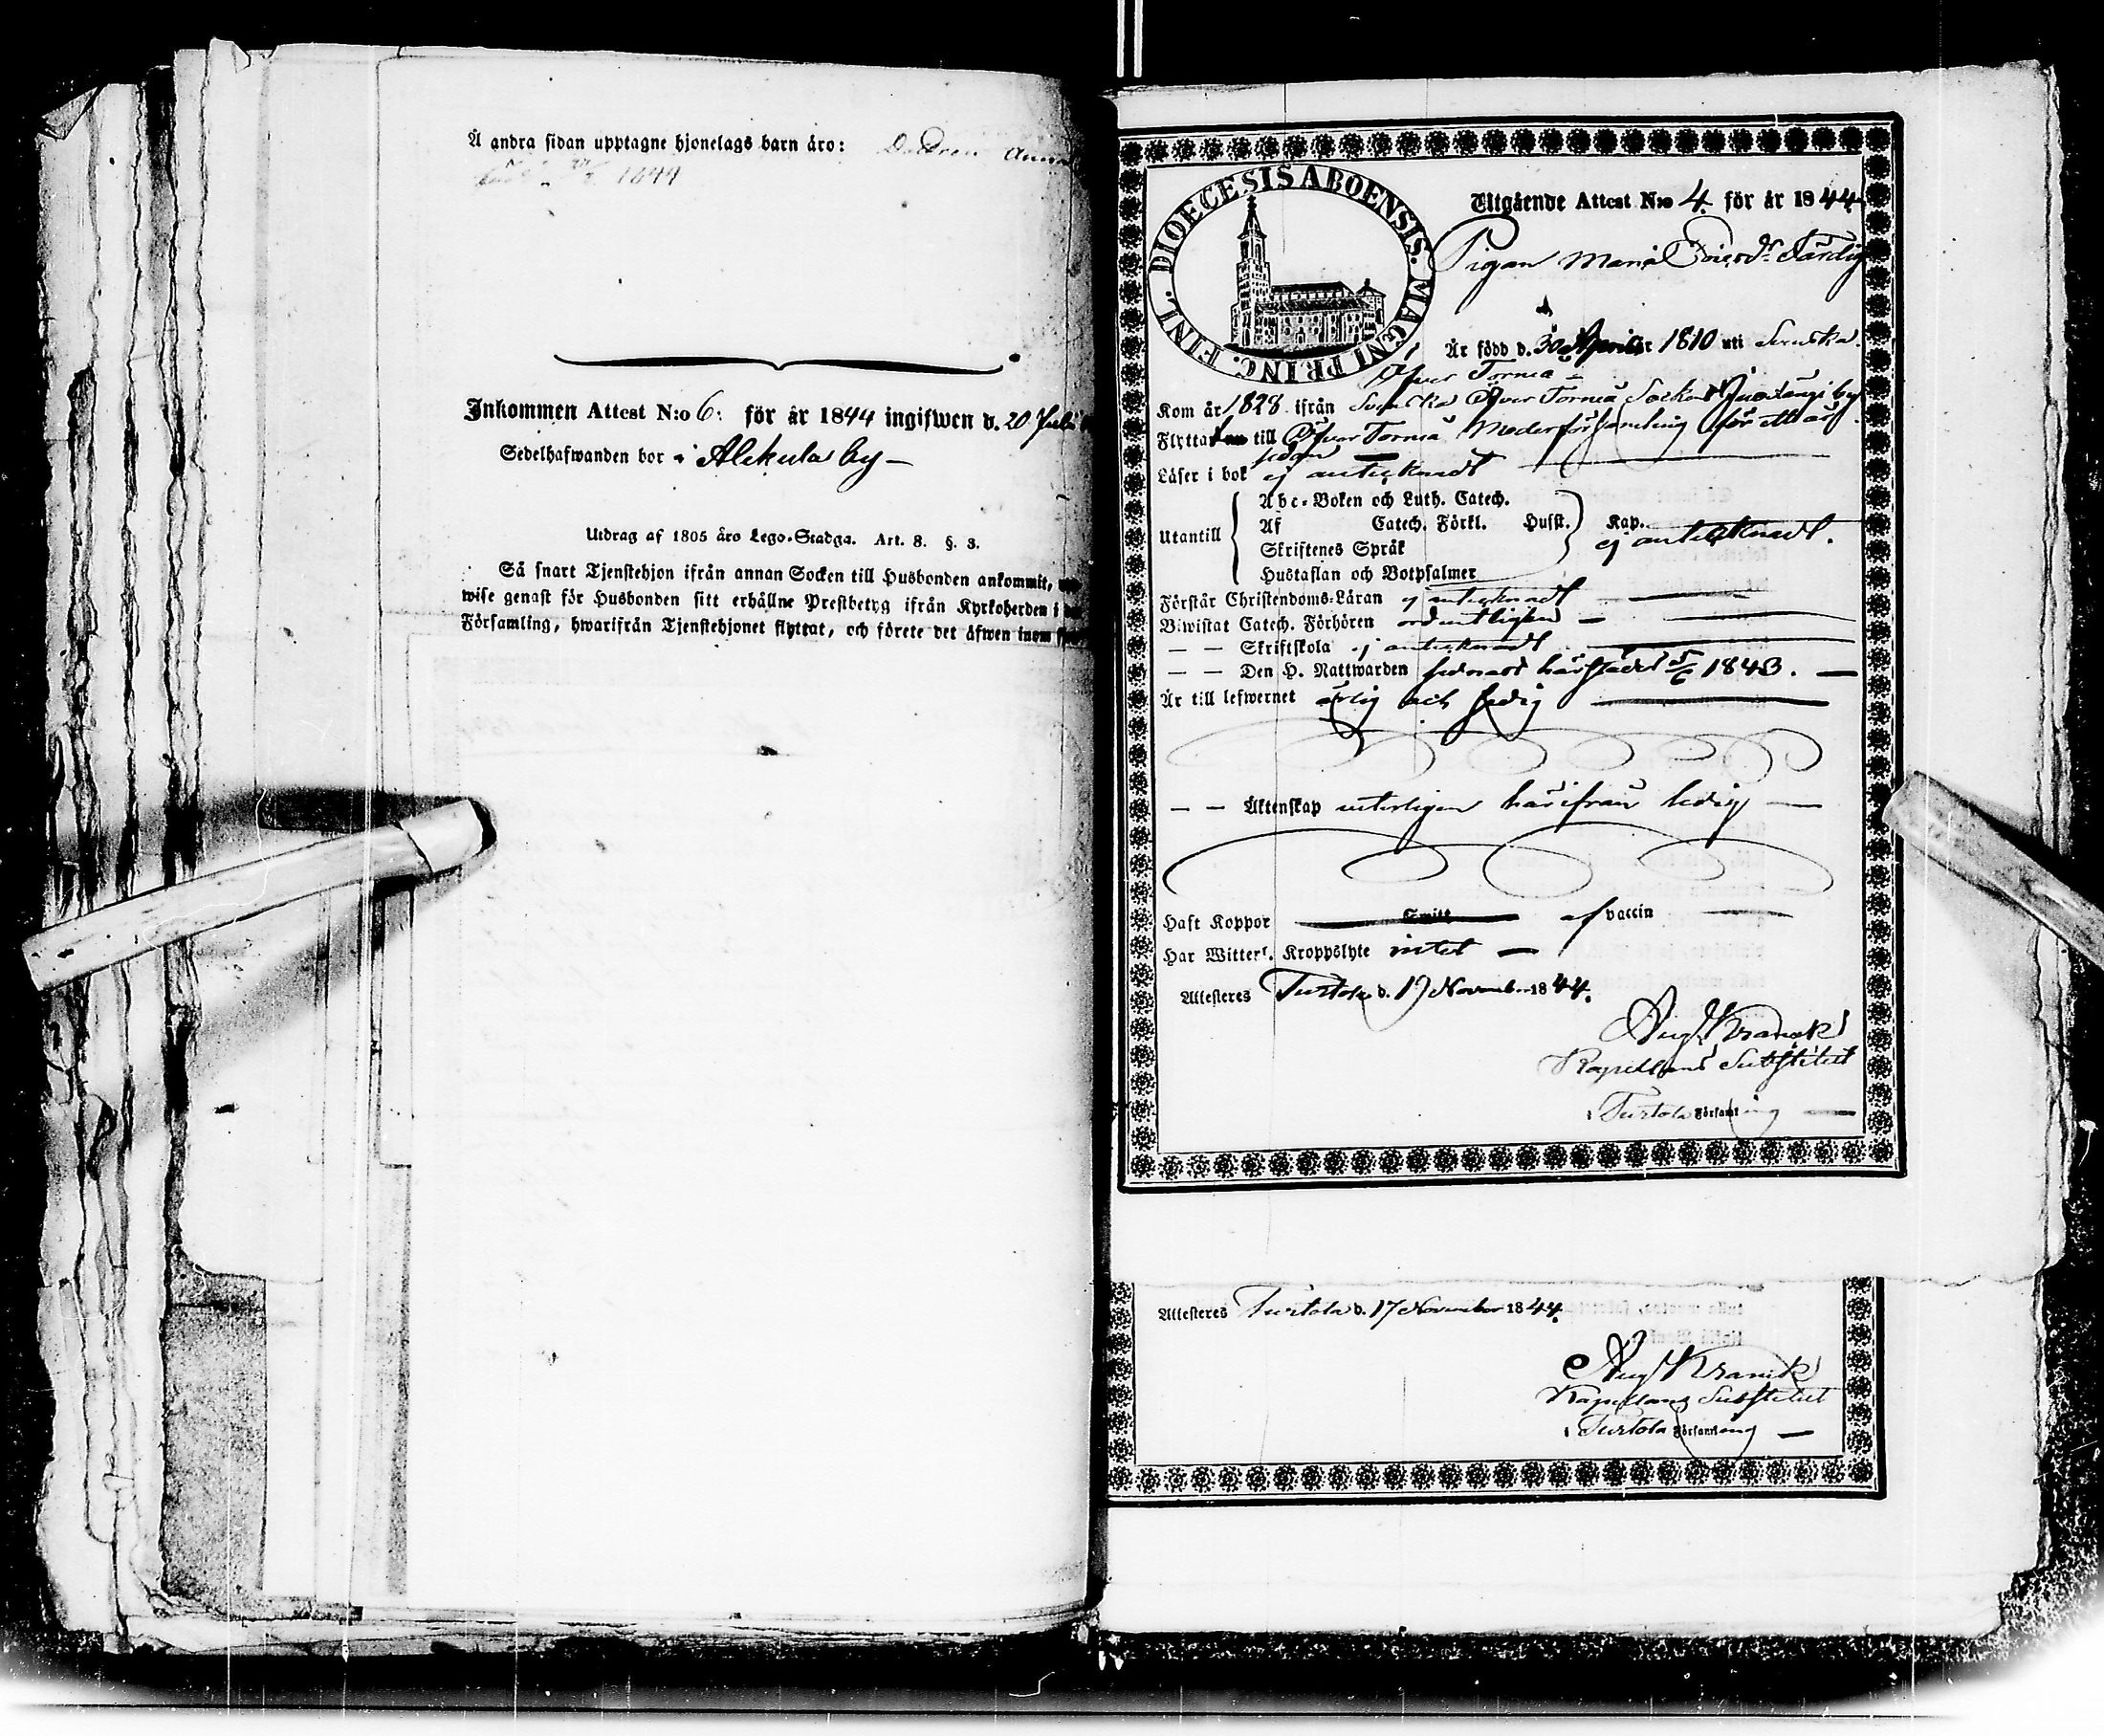 Å andra sidan upptagne hjonelags barn äro: Anna
1844
Inkommen Attest N:o 6: för år 1844 ingifwen d. 20 Juli
Sedelhafwanden bor i Alekula by —
Utdrag af 1805 års Lego-Stadga. Art. 8. §. 3.
Så snart Tjenstehjon ifrån annan Socken till Husbonden ankommit,
wise genast för Husbonden sitt erhållne Prestbetyg ifrån Kyrkoherden i
Församling, hwarifrån Tjenstehjonet flyttat, och förete det äfwen inom
DIOECESIS ABOENSIS. MAGNI PRINC. FINL.
Utgående Attest N:o 4. för år 1844
Pigan Maria
Är född d. 30 April 1810 uti Svenska
Öfver Torneå —
Kom år 1828 ifrån Svenska Öfver Torneå Socken by
Flyttar till Öfver Torneå Moderförsamling för ett år
sedan
Läser i bok ej antecknadt
Utantill
Abc-Boken och Luth. Catech.
Af Catech. Förkl. Husst. Kap.
ej antecknadt.
Skriftenes Språk
Hustaflan och Botpsalmer
Förstår Christendoms-Läran ej antecknadt
Biwistat Catech. Förhören ordentligen —
— — Skriftskola ej antecknadt
— — Den H. Nattwarden sednast härstädes 5/6 1843. —
Är till lefwernet ärlig och sedig
— — Äktenskap veterligen härifrån ledig —
Haft Koppor Smitt af vaccin
Har Witterl. Kroppslyte intet —
Attesteras Turtola d. 17 November 1844.
Aug. Kranck
Kapellans Substitut
i Turtola Församling —
Attesteras Turtola d. 17 November 1844.
Aug. Kranck
Kapellans Substitut
i Turtola Församling —